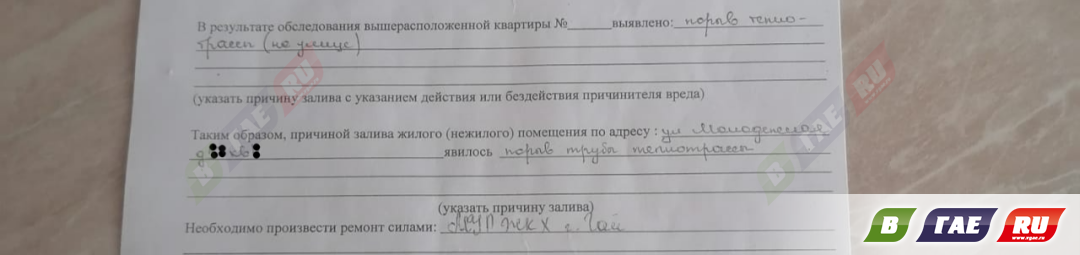 В результате обследования вышерасположенной квартиры №______выявлено: порыв тепло-
трассы (на улице)
(указать причину залива с указанием действия или бездействия причинителя вреда)
Таким образом, причиной залива жилого (нежилого) помещения по адресу : ул Молодежная
д кв явилось порыв трубы теплотрассы
(указать причину залива)
Необходимо произвести ремонт силами: МУП ЖКХ г. Гай
В ГАЕ RU
www.vgae.ru